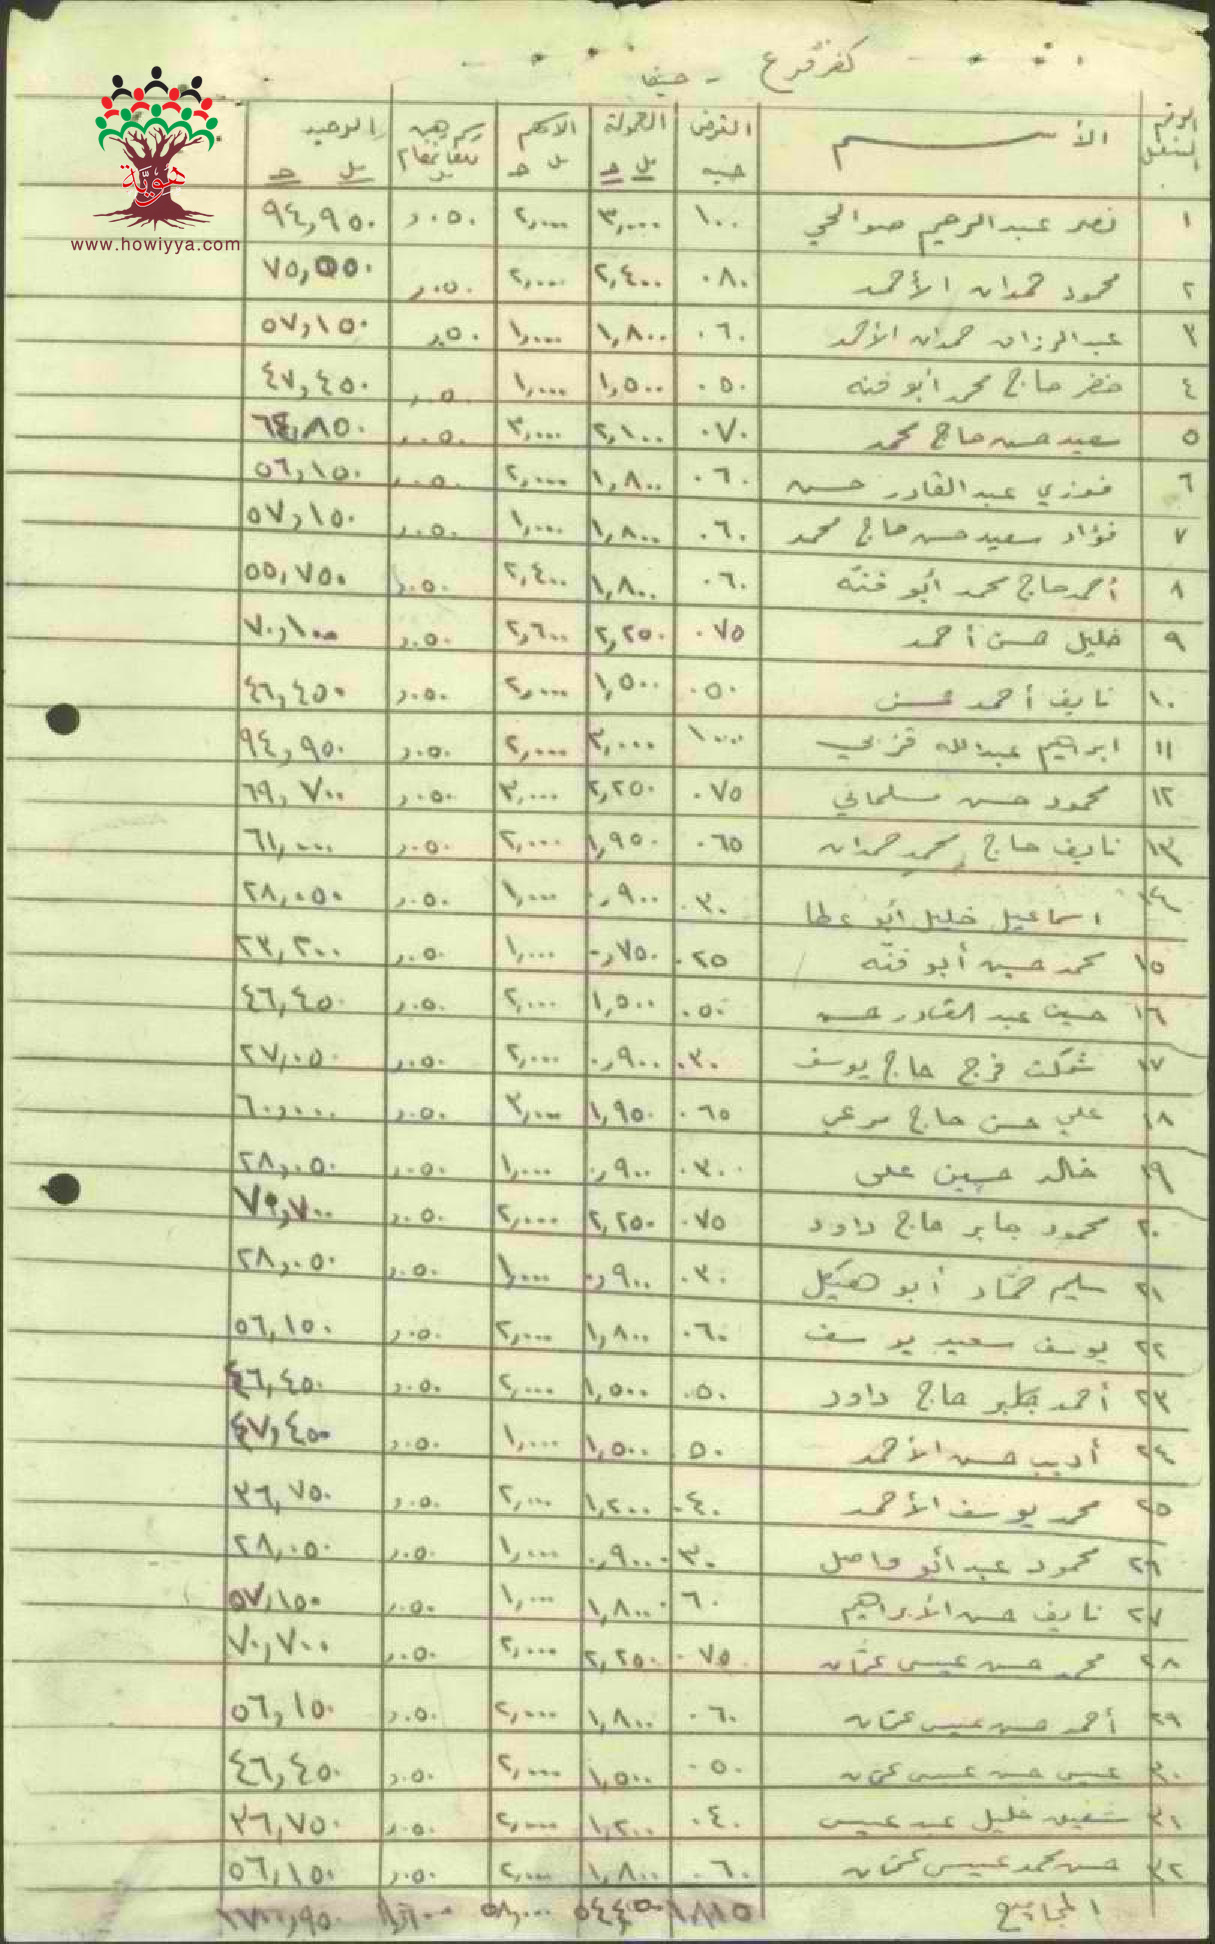 كفرقرع - حيفا
هويّة
www.howiyya.com
الرقم المتسلسل الأســــم القرض جنيه العمولة مل ج الاسهم مل ج رسم رهن الرصيد مل ج
١ نصر عبد الرحيم ١٠٠ ٣,٠٠٠ ٢,٠٠٠ ٠٥٠ر ٩٤,٩٥٠
٢ محمود حمدان الأحمد ٠٨٠ ٢,٤٠٠ ٢,٠٠٠ ٠٥٠ر ٧٥,٥٥٠
٣ عبد الرزاق حمدان الأحمد ٠٦٠ ١,٨٠٠ ١,٠٠٠ ٠٥٠ر ٥٧,١٥٠
٤ خضر حاج محمد أبو فنه ٠٥٠ ١,٥٠٠ ١,٠٠٠ ٠٥٠ر ٤٧,٤٥٠
٥ سعيد حسن حاج محمد ٠٧٠ ٢,١٠٠ ٣,٠٠٠ ٠٥٠ر ٦٤,٨٥٠
٦ فوزي عبد القادر حسن ٠٦٠ ١,٨٠٠ ٢,٠٠٠ ٠٥٠ر ٥٦,١٥٠
٧ فؤاد سعيد حسن حاج محمد ٠٦٠ ١,٨٠٠ ١,٠٠٠ ٠٥٠ر ٥٧,١٥٠
٨ أحمد حاج محمد أبو فنّه ٠٦٠ ١,٨٠٠ ٢,٤٠٠ ٠٥٠ر ٥٥,٧٥٠
٩ خليل حسن أحمد ٠٧٥ ٢,٢٥٠ ٢,٦٠٠ ٠٥٠ر ٧٠,١٠٠
١٠ نايف أحمد حسن ٠٥٠ ١,٥٠٠ ٢,٠٠٠ ٠٥٠ر ٤٦,٤٥٠
١١ ابراهيم عبدالله قزبي ١٠٠ ٣,٠٠٠ ٢,٠٠٠ ٠٥٠ر ٩٤,٩٥٠
١٢ محمود حسن مسلماني ٠٧٥ ٢,٢٥٠ ٣,٠٠٠ ٠٥٠ر ٦٩,٧٠٠
١٣ نايف حاج محمد حمدان ٠٦٥ ١,٩٥٠ ٢,٠٠٠ ٠٥٠ر ٦١,٠٠٠
١٤ اسماعيل خليل أبو عطا ٠٣٠ ٠,٩٠٠ ١,٠٠٠ ٠٥٠ر ٢٨,٠٥٠
١٥ محمد حسين أبو فنّه ٠٢٥ ٠,٧٥٠ ١,٠٠٠ ٠٥٠ر ٢٣,٢٠٠
١٦ حسين عبد القادر حسن ٠٥٠ ١,٥٠٠ ٢,٠٠٠ ٠٥٠ر ٤٦,٤٥٠
١٧ شوكت فرج حاج يوسف ٠٣٠ ٠,٩٠٠ ٢,٠٠٠ ٠٥٠ر ٢٧,٠٥٠
١٨ علي حسن حاج مرعي ٠٦٥ ١,٩٥٠ ٣,٠٠٠ ٠٥٠ر ٦٠,٠٠٠
١٩ خالد حسين علي ٠٣٠ ٠,٩٠٠ ١,٠٠٠ ٠٥٠ر ٢٨,٠٥٠
٢٠ محمود جابر حاج داود ٠٧٥ ٢,٢٥٠ ٢,٠٠٠ ٠٥٠ر ٧٠,٧٠٠
٢١ سليم حمّاد أبو هيكل ٠٣٠ ٠,٩٠٠ ١,٠٠٠ ٠٥٠ر ٢٨,٠٥٠
٢٢ يوسف سعيد يوسف ٠٦٠ ١,٨٠٠ ٢,٠٠٠ ٠٥٠ر ٥٦,١٥٠
٢٣ أحمد جابر حاج داود ٠٥٠ ١,٥٠٠ ٢,٠٠٠ ٠٥٠ر ٤٦,٤٥٠
٢٤ أديب حسن الأحمد ٥٠ ١,٥٠٠ ١,٠٠٠ ٠٥٠ر ٤٧,٤٥٠
٢٥ محمد يوسف الأحمد ٠٤٠ ١,٢٠٠ ٢,٠٠٠ ٠٥٠ر ٣٦,٧٥٠
٢٦ محمود عبد أبو واصل ٠٣٠ ٠,٩٠٠ ١,٠٠٠ ٠٥٠ر ٢٨,٠٥٠
٢٧ نايف حسن الأبراهيم ٠٦٠ ١,٨٠٠ ١,٠٠٠ ٠٥٠ر ٥٧,١٥٠
٢٨ محمد حسن عيسى عثمان ٠٧٥ ٢,٢٥٠ ٢,٠٠٠ ٠٥٠ر ٧٠,٧٠٠
٢٩ أحمد حسن عيسى عثمان ٠٦٠ ١,٨٠٠ ٢,٠٠٠ ٠٥٠ر ٥٦,١٥٠
٣٠ عيسى حسن عيسى عثمان ٠٥٠ ١,٥٠٠ ٢,٠٠٠ ٠٥٠ر ٤٦,٤٥٠
٣١ شفيق خليل عبد عيسى ٠٤٠ ١,٢٠٠ ٢,٠٠٠ ٠٥٠ر ٣٦,٧٥٠
٣٢ حسن محمد عيسى عثمان ٠٦٠ ١,٨٠٠ ٢,٠٠٠ ٠٥٠ر ٥٦,١٥٠
المجاميع ١٨١٥ ٥٤,٤٥٠